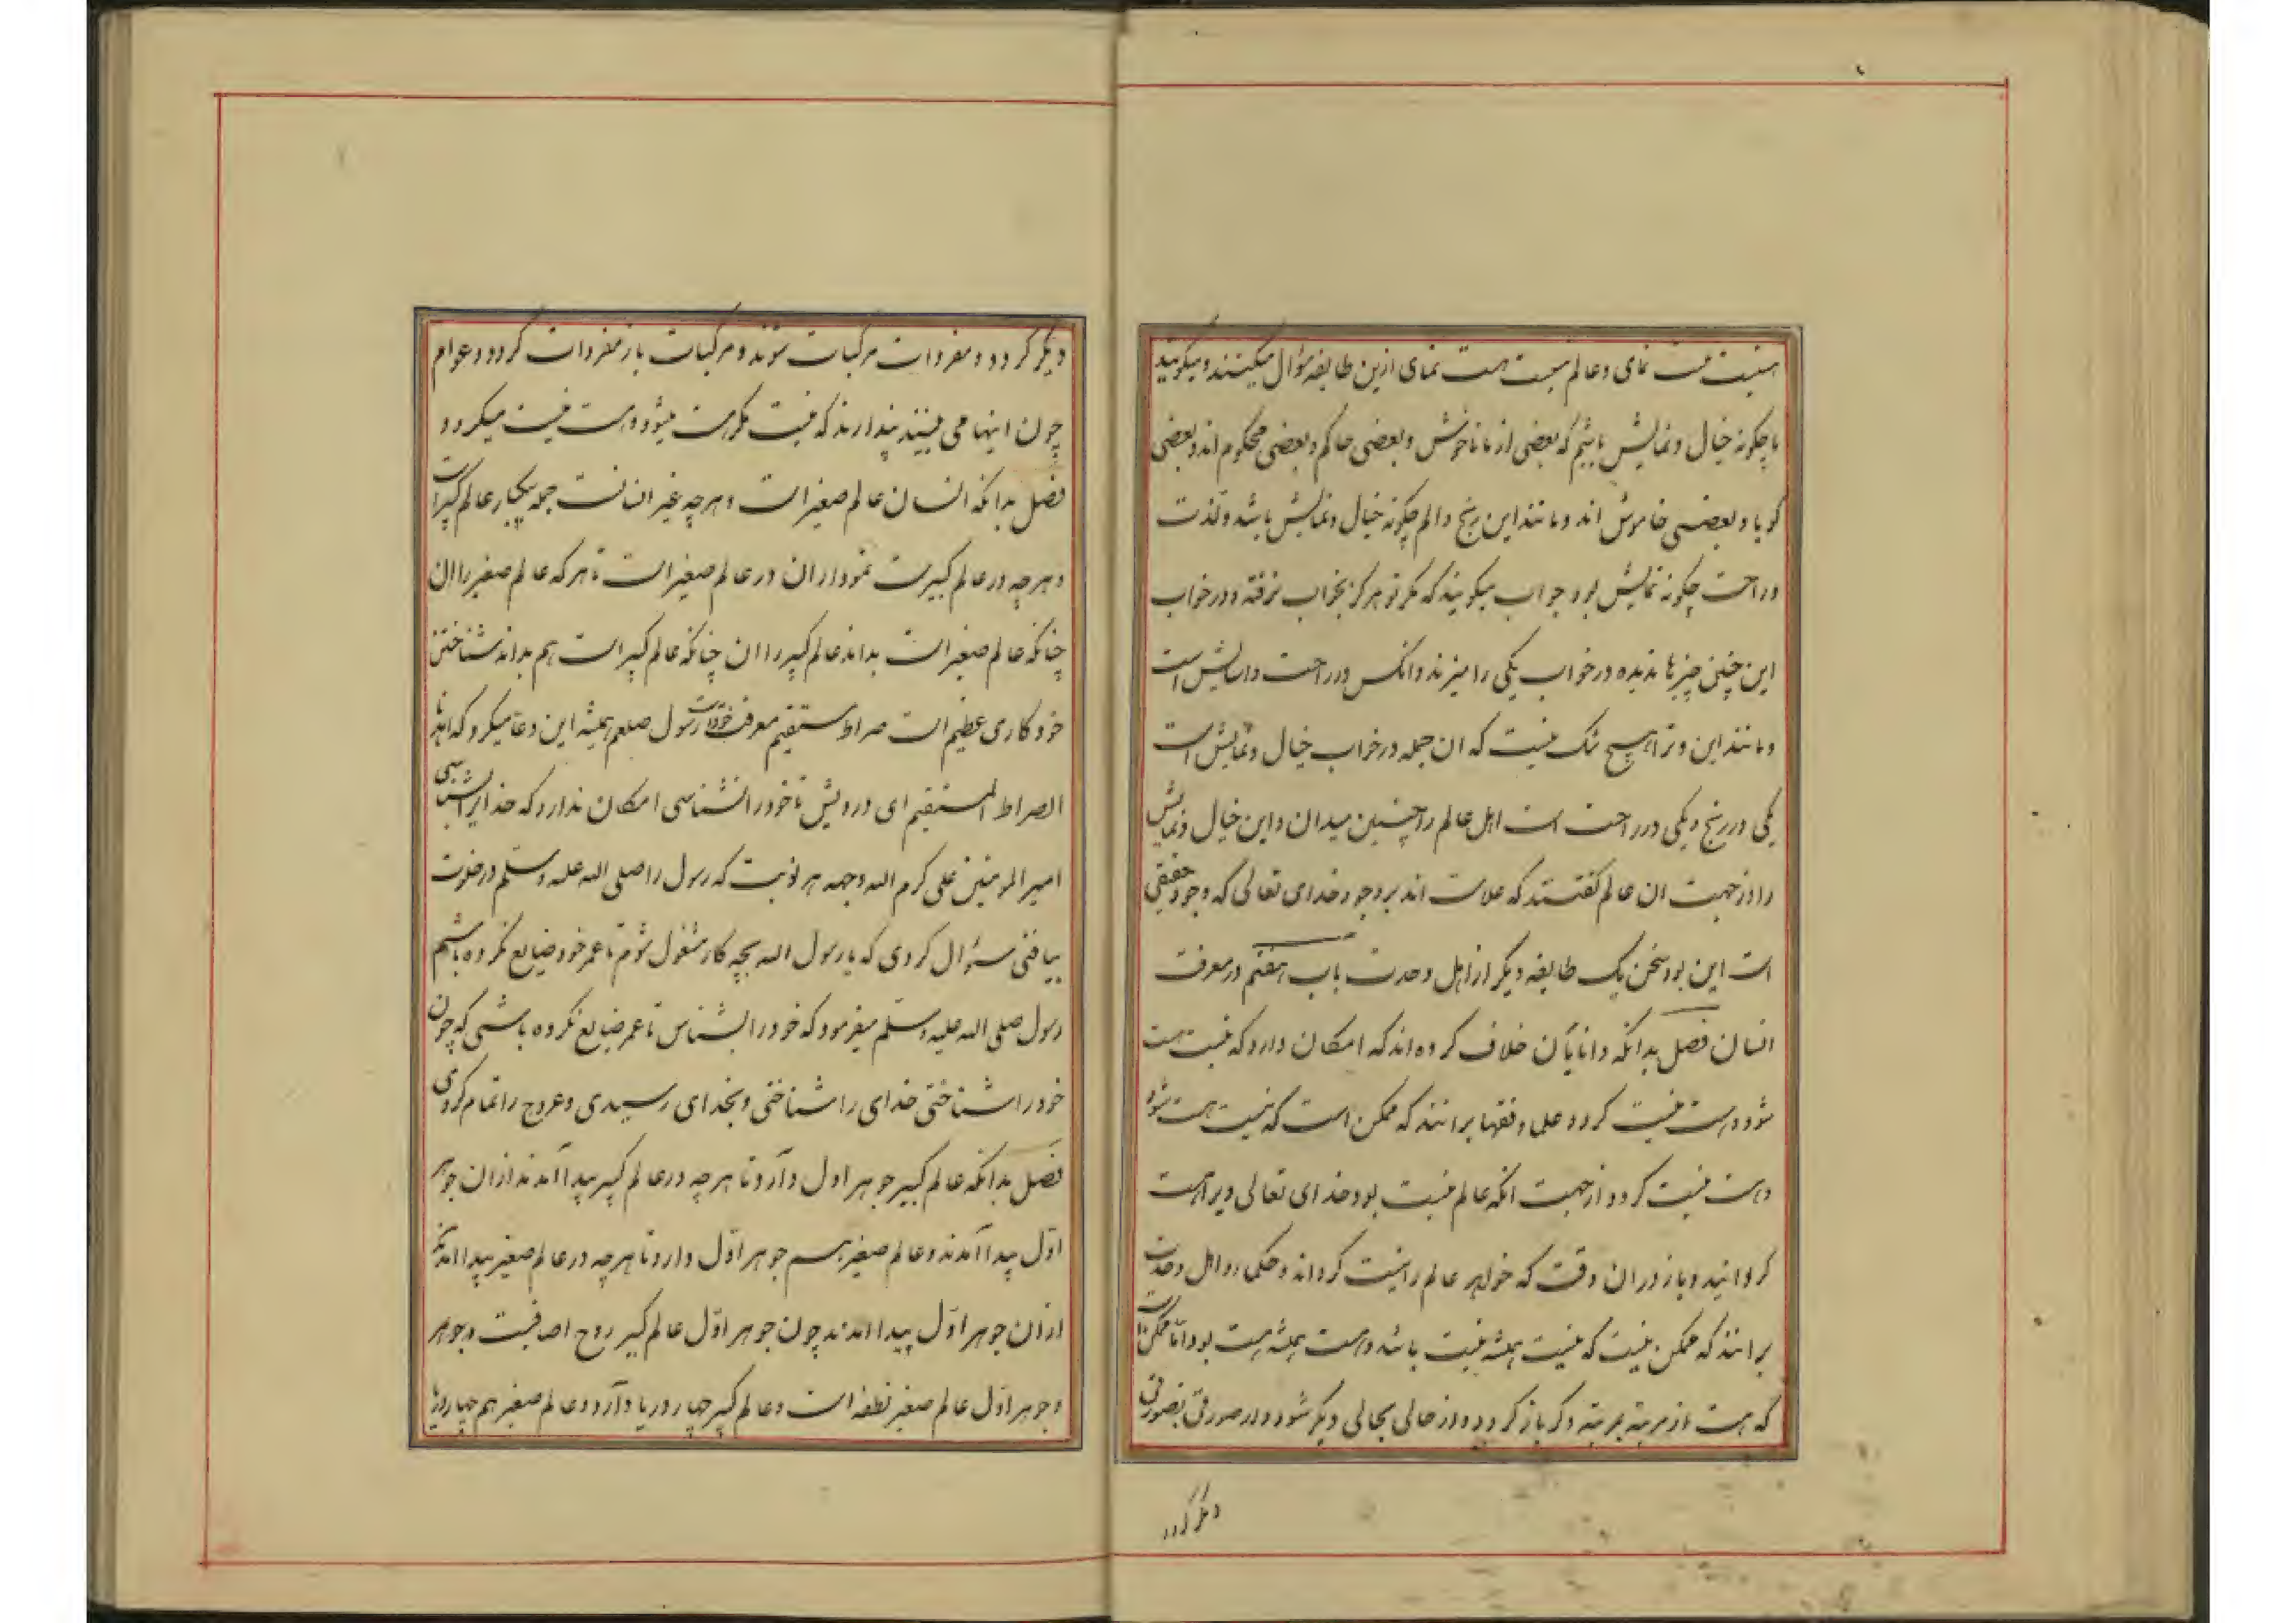 هستیست نیست نمای و عالم نیست هست نمای ازین طایفه سؤال میکنند و میکویند
ما چکونه خیال و نمایش باشیم که بعضی از ما ناخوش و بعضی حاکم و بعضی محکوم اند و بعضی
کویا و بعضی خاموش اند و مانند این رنج و الم چکونه خیال و نمایش باشد و لذت
و راحت چکونه نمایش بود جواب میکویند که مکر تو هرکز بخواب نرفته و در خواب
این چنین چیزها ندیده در خواب یکی را میزنند و انکس در راحت و اسایش است
و مانند این و ترا هیچ شک نیست که ان جمله در خواب خیال و نمایش است
یکی در رنج و یکی در راحت است اهل عالم را چنین میدان و این خیال و نمایش
را از جهت ان عالم کفتند که علامت اند بر وجود خدای تعالی که وجود حقیقی
است این بود سخن یک طایفه دیکر از اهل وحدت باب هفتم در معرفت
انسان فصل بدانکه دانایان خلاف کرده اند که امکان دارد که نیست هست
شود و هست نیست کردد علما و فقها برانند که ممکن است که نیست هست شود
و هست نیست کردد از جهت انکه عالم نیست بود خدای تعالی ویرا هست
کردانید و باز دران وقت که خواهد عالم را نیست کرداند و حکما و اهل وحدت
برانند که ممکن نیست که نیست همیشه نیست باشد و هست همیشه هست بود اما ممکن است
که هست از مرتبه بمرتبه دکر باز کردد و از حالی بحالی دیکر شود و از صورتی بصورتی
دیکر کردد
دیکر کردد و مفردات مرکبات شوند و مرکبات باز مفردات کردد و عوام
چون اینها می بینند پندارند که نیست مکر هست میشود و هست نیست میکردد
فصل بدانکه انسان عالم صغیر است و هرچه غیر انسانست جمله بیکبار عالم کبیر است
و هرچه در عالم کبیرست نمودار ان در عالم صغیر است تا هرکه عالم صغیر را ان
چنانکه عالم صغیر است بداند عالم کبیر را ان چنانکه عالم کبیر است هم بداند شناختن
خود کاری عظیم است صراط مستقیم معرفت خود است رسول صلعم همیشه این دعا میکرد که اهدنا
الصراط المستقیم ای درویش تا خود را نشناسی امکان ندارد که خدایرا بشناسی
امیر المومنین علی کرم الله وجهه هر نوبت که رسول را صلی الله علیه وسلم در خلوت
بیافتی سؤال کردی که یا رسول الله بچه کار مشغول شوم تا عمر خود ضایع نکرده باشم
رسول صلی الله علیه وسلم میفرمود که خود را بشناس تا عمر ضایع نکرده باشی که چون
خود را شناختی خدای را شناختی و بخدای رسیدی و عروج را تمام کردی
فصل بدانکه عالم کبیر جوهر اول دآرد تا هرچه در عالم کبیر پیدا آمدند ازان جوهر
اول پیدا آمدند و عالم صغیر هم جوهر اول دارد تا هرچه در عالم صغیر پیدا امدند
ازان جوهر اول پیدا امدند چون جوهر اول عالم کبیر روح اضافیست و جوهر
و جوهر اول عالم صغیر نطفه است و عالم کبیر چهار دریا دآرد و عالم صغیر هم چهار دریا